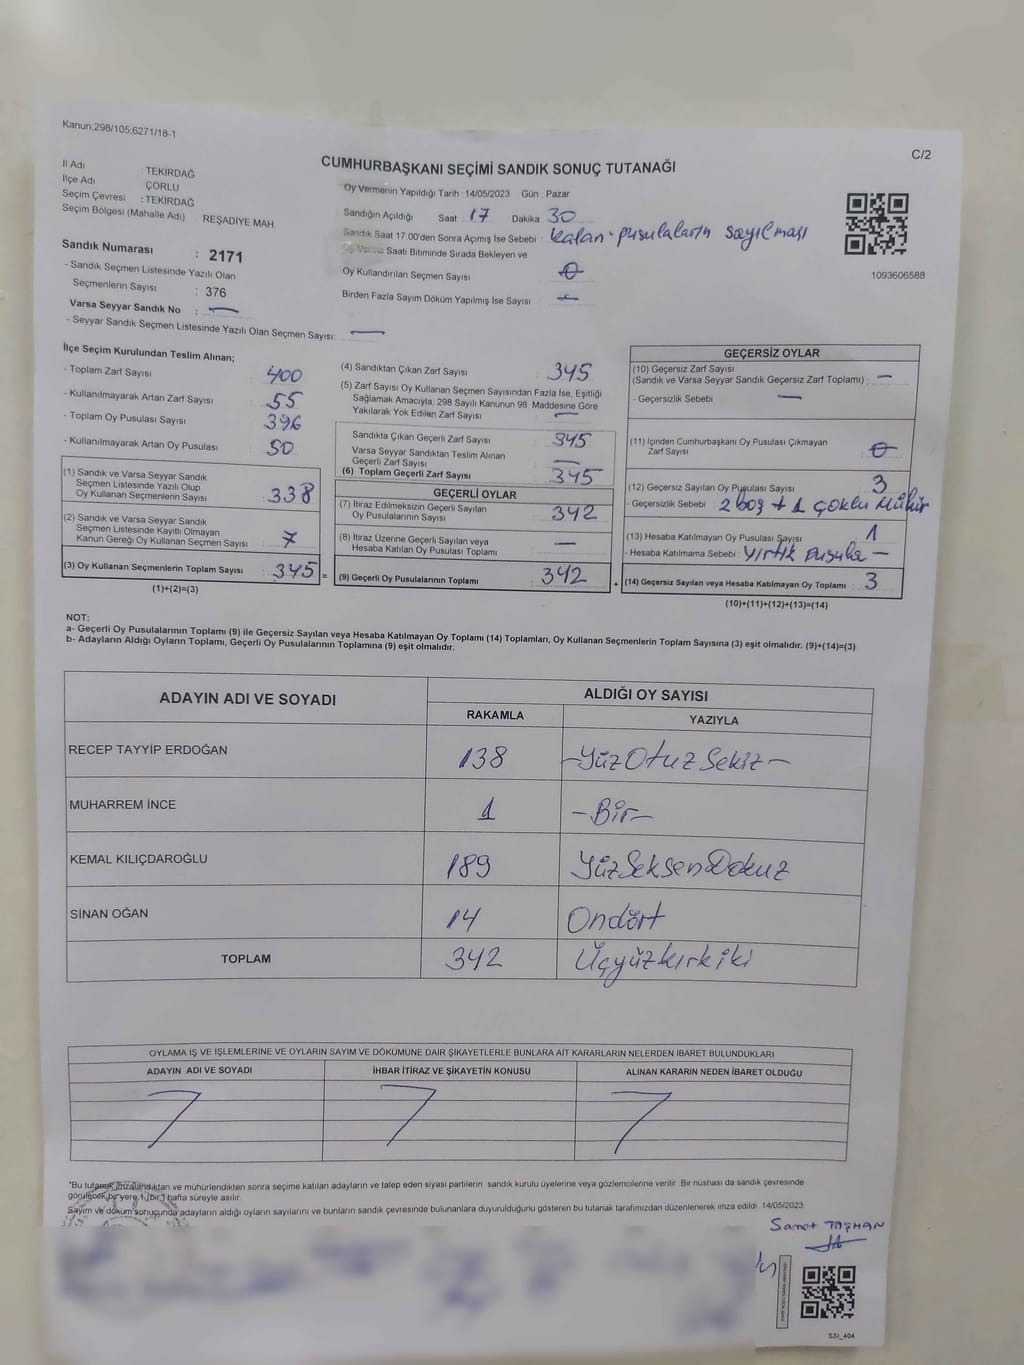 Kanun;298/105;6271/18-1
C/2
CUMHURBAŞKANI SEÇİMİ SANDIK SONUÇ TUTANAĞI
İl Adı : TEKİRDAĞ
İlçe Adı ÇORLU
Seçim Çevresi : TEKİRDAĞ
Seçim Bölgesi (Mahalle Adı) REŞADİYE MAH.
Sandık Numarası : 2171
- Sandık Seçmen Listesinde Yazılı Olan
Seçmenlerin Sayısı : 376
Varsa Seyyar Sandık No :
- Seyyar Sandık Seçmen Listesinde Yazılı Olan Seçmen Sayısı:
Oy Vermenin Yapıldığı Tarih : 14/05/2023 Gün : Pazar
Sandığın Açıldığı Saat 17 Dakika 30
Sandık Saat 17:00'den Sonra Açımış İse Sebebi : kalan pusulaların sayılması
Verme Saati Bitiminde Sırada Bekleyen ve
Oy Kullandırılan Seçmen Sayısı 0
Birden Fazla Sayım Döküm Yapılmış İse Sayısı
1093606588
İlçe Seçim Kurulundan Teslim Alınan;
- Toplam Zarf Sayısı 400
- Kullanılmayarak Artan Zarf Sayısı 55
- Toplam Oy Pusulası Sayısı 396
- Kullanılmayarak Artan Oy Pusulası 50
(1) Sandık ve Varsa Seyyar Sandık
Seçmen Listesinde Yazılı Olup
Oy Kullanan Seçmenlerin Sayısı 338
(2) Sandık ve Varsa Seyyar Sandık
Seçmen Listesinde Kayıtlı Olmayan
Kanun Gereği Oy Kullanan Seçmen Sayısı 7
(3) Oy Kullanan Seçmenlerin Toplam Sayısı 345 =
(1)+(2)=(3)
(4) Sandıktan Çıkan Zarf Sayısı 345
(5) Zarf Sayısı Oy Kullanan Seçmen Sayısından Fazla İse, Eşitliği
Sağlamak Amacıyla, 298 Sayılı Kanunun 98. Maddesine Göre
Yakılarak Yok Edilen Zarf Sayısı
Sandıkta Çıkan Geçerli Zarf Sayısı 345
Varsa Seyyar Sandıktan Teslim Alınan
Geçerli Zarf Sayısı
(6) Toplam Geçerli Zarf Sayısı 345
GEÇERLİ OYLAR
(7) İtiraz Edilmeksizin Geçerli Sayılan
Oy Pusulalarının Sayısı 342
(8) İtiraz Üzerine Geçerli Sayılan veya
Hesaba Katılan Oy Pusulası Toplamı
(9) Geçerli Oy Pusulalarının Toplamı 342 +
GEÇERSİZ OYLAR
(10) Geçersiz Zarf Sayısı
(Sandık ve Varsa Seyyar Sandık Geçersiz Zarf Toplamı) :
- Geçersizlik Sebebi :
(11) İçinden Cumhurbaşkanı Oy Pusulası Çıkmayan
Zarf Sayısı 0
(12) Geçersiz Sayılan Oy Pusulası Sayısı 3
- Geçersizlik Sebebi : 2 boş + 1 çoklu mühür
(13) Hesaba Katılmayan Oy Pusulası Sayısı 1
- Hesaba Katılmama Sebebi : yırtık pusula
(14) Geçersiz Sayılan veya Hesaba Katılmayan Oy Toplamı : 3
(10)+(11)+(12)+(13)=(14)
NOT:
a- Geçerli Oy Pusulalarının Toplamı (9) ile Geçersiz Sayılan veya Hesaba Katılmayan Oy Toplamı (14) Toplamları, Oy Kullanan Seçmenlerin Toplam Sayısına (3) eşit olmalıdır. (9)+(14)=(3)
b- Adayların Aldığı Oyların Toplamı, Geçerli Oy Pusulalarının Toplamına (9) eşit olmalıdır.
ADAYIN ADI VE SOYADI
ALDIĞI OY SAYISI
RAKAMLA YAZIYLA
RECEP TAYYİP ERDOĞAN 138 -YüzOtuzSekiz-
MUHARREM İNCE 1 -Bir-
KEMAL KILIÇDAROĞLU 189 YüzSeksenDokuz
SİNAN OĞAN 14 Ondört
TOPLAM 342 Üçyüzkırkiki
OYLAMA İŞ VE İŞLEMLERİNE VE OYLARIN SAYIM VE DÖKÜMÜNE DAİR ŞİKAYETLERLE BUNLARA AİT KARARLARIN NELERDEN İBARET BULUNDUKLARI
ADAYIN ADI VE SOYADI İHBAR İTİRAZ VE ŞİKAYETİN KONUSU ALINAN KARARIN NEDEN İBARET OLDUĞU
"Bu tutanak imzalandıktan ve mühürlendikten sonra seçime katılan adayların ve talep eden siyasi partilerin sandık kurulu üyelerine veya gözlemcilerine verilir. Bir nüshası da sandık çevresinde
görülecek bir yere 1 (bir) hafta süreyle asılır.
Sayım ve döküm sonucunda adayların aldığı oyların sayılarını ve bunların sandık çevresinde bulunanlara duyurulduğunu gösteren bu tutanak tarafımızdan düzenlenerek imza edildi. 14/05/2023
Samet TAŞHAN
SSI_404